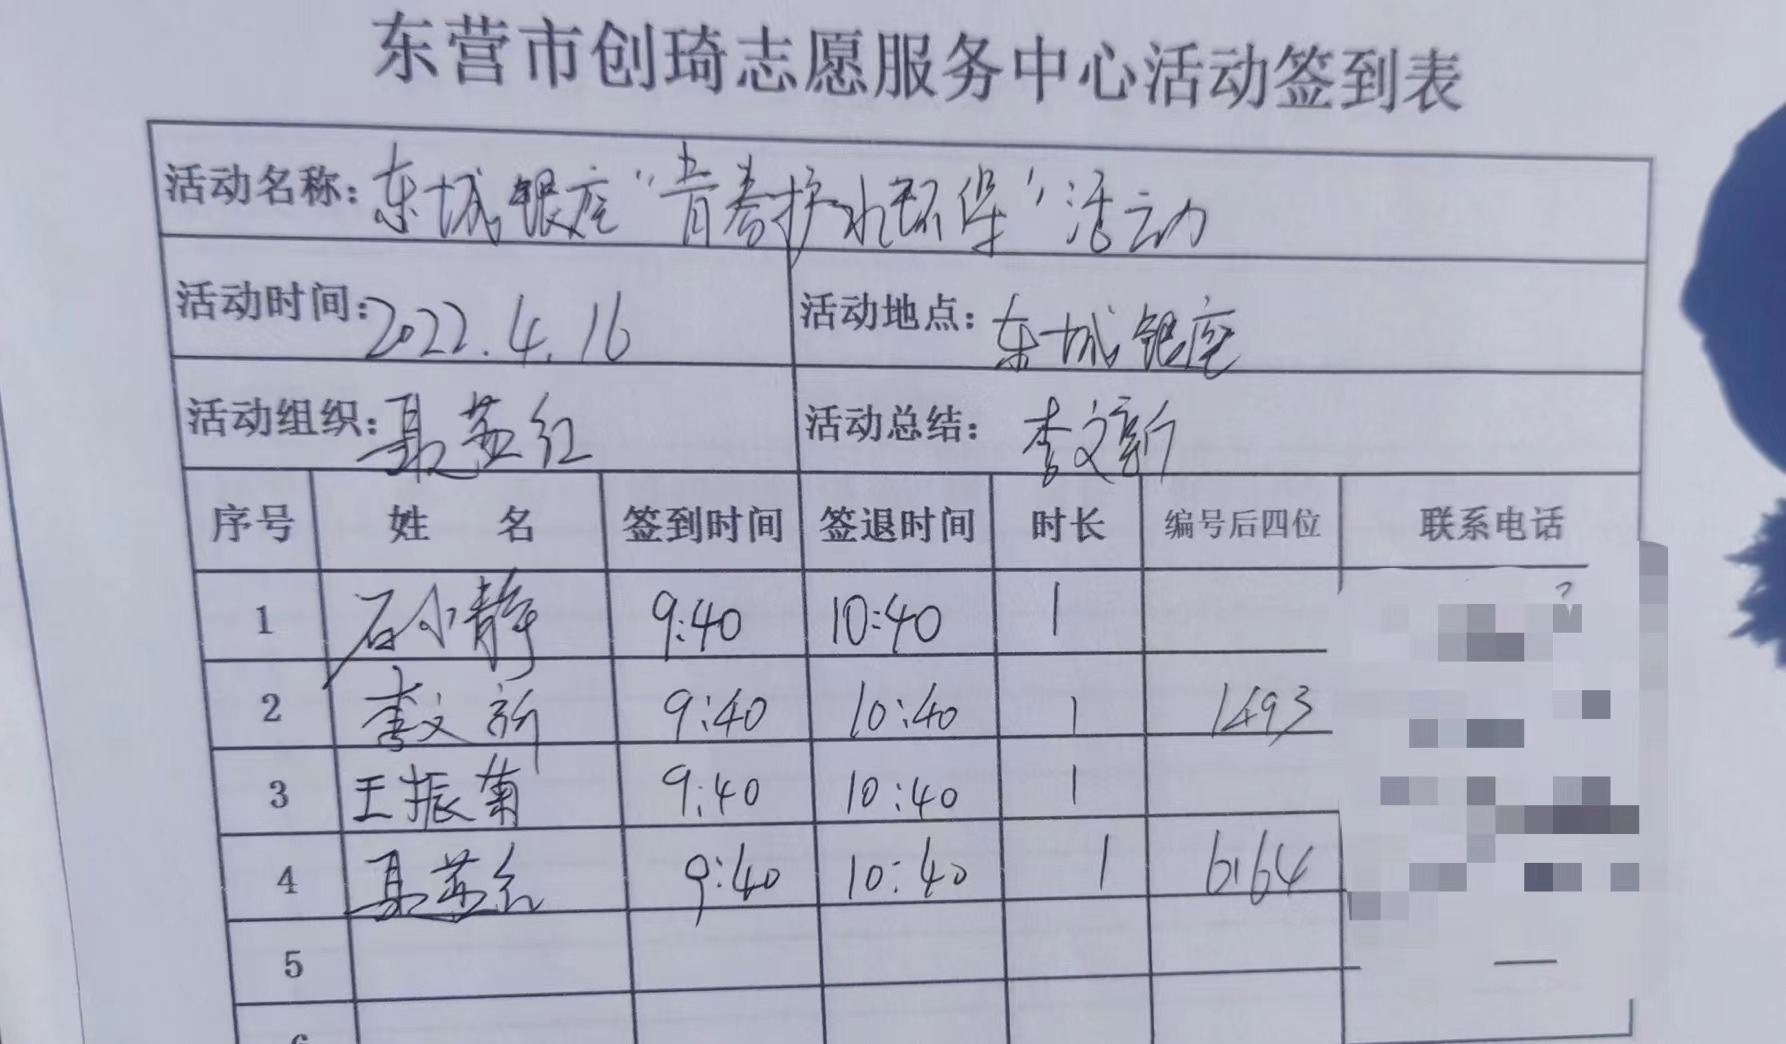 东营市创琦志愿服务中心活动签到表
活动名称：东城银座“青春护水环保”活动
活动时间：2022.4.16 活动地点：东城银座
活动组织：聂燕红 活动总结：李文新
序号 姓 名 签到时间 签退时间 时长 编号后四位 联系电话
1 石小静 9:40 10:40 1
2 李文新 9:40 10:40 1 1493
3 王振菊 9:40 10:40 1
4 聂燕红 9:40 10:40 1 6164
5